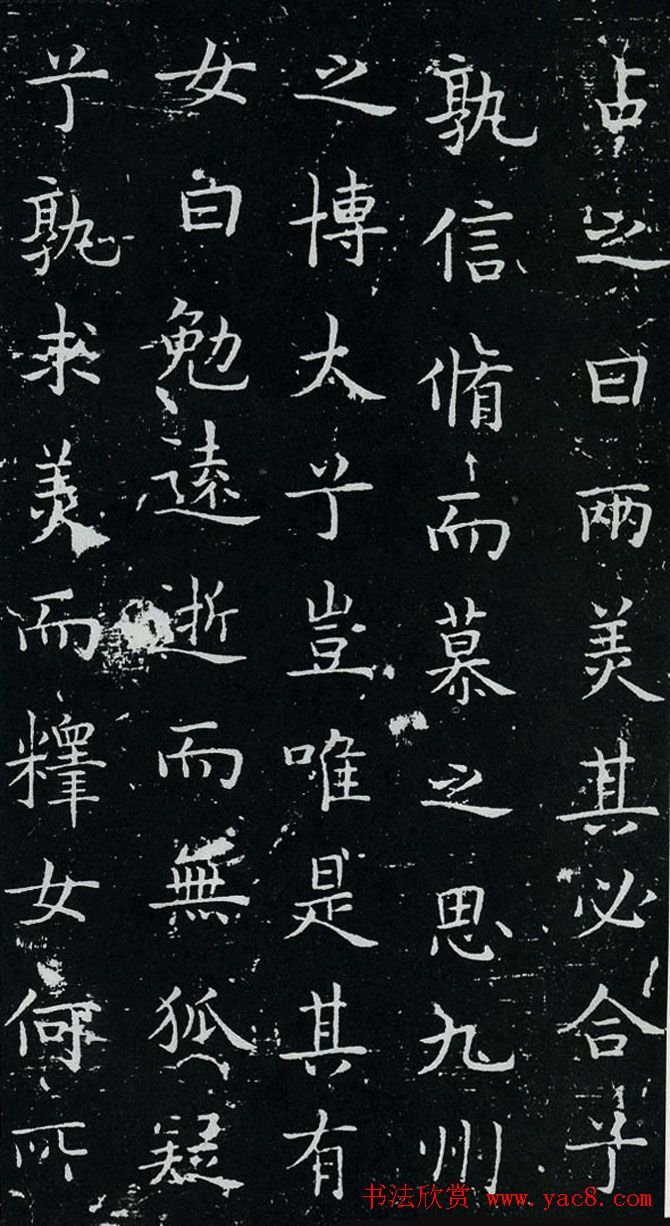 占之曰兩美其必合兮
孰信脩而慕之思九州
之博太兮豈唯是其有
女曰勉遠逝而無狐疑
兮孰求美而釋女何所
书法欣赏 www.yac8.com